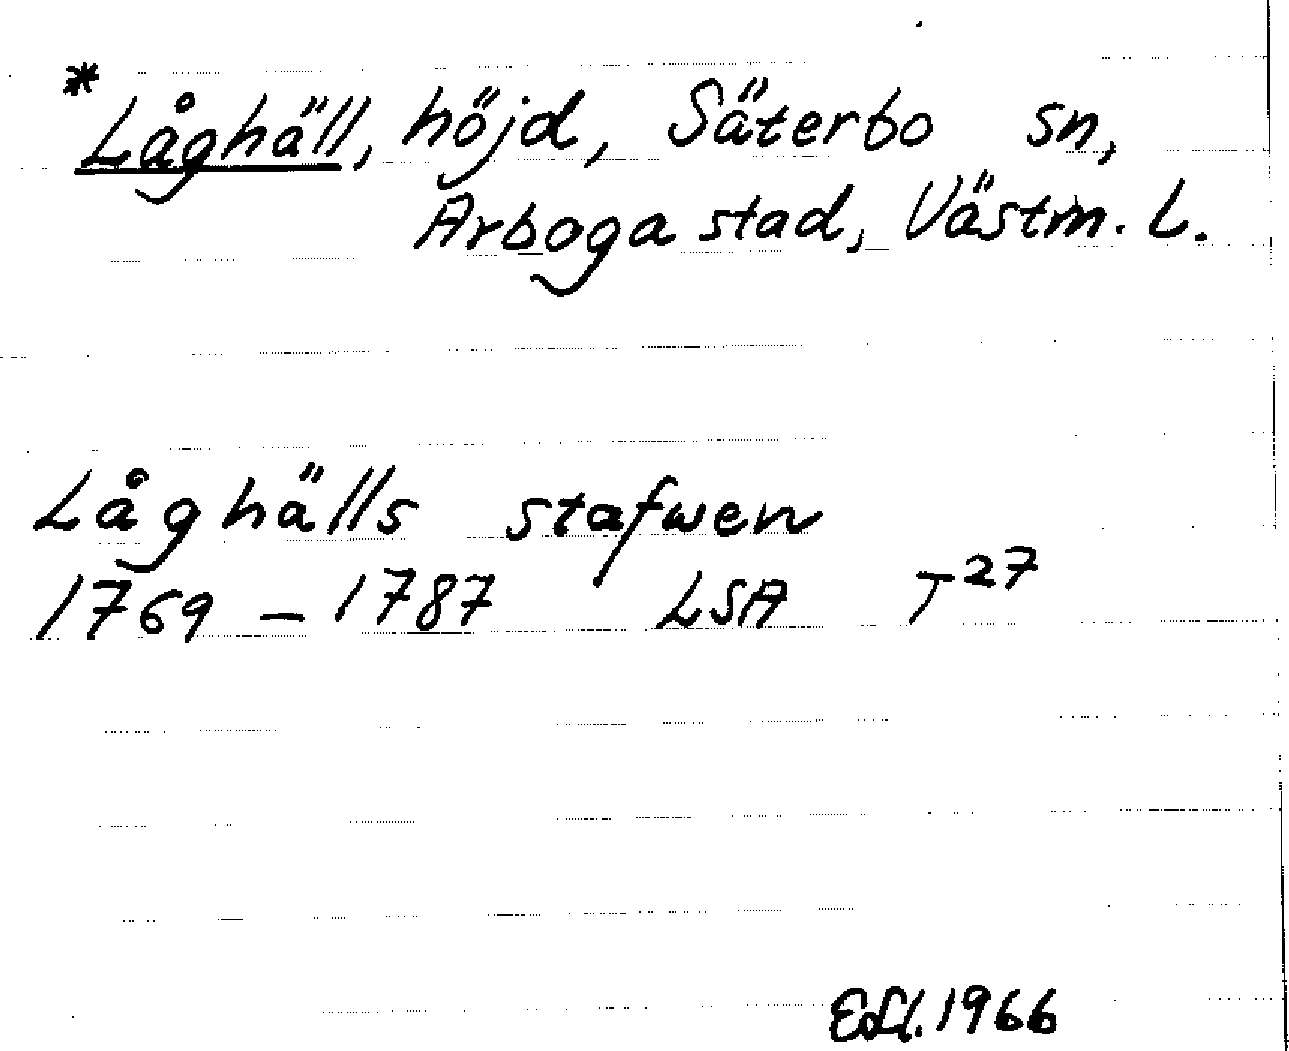 *Låghäll, höjd, Säterbo sn,
Arboga stad, Västm. L.
Låghälls stafwen
1769 – 1787 LSA T27
1966